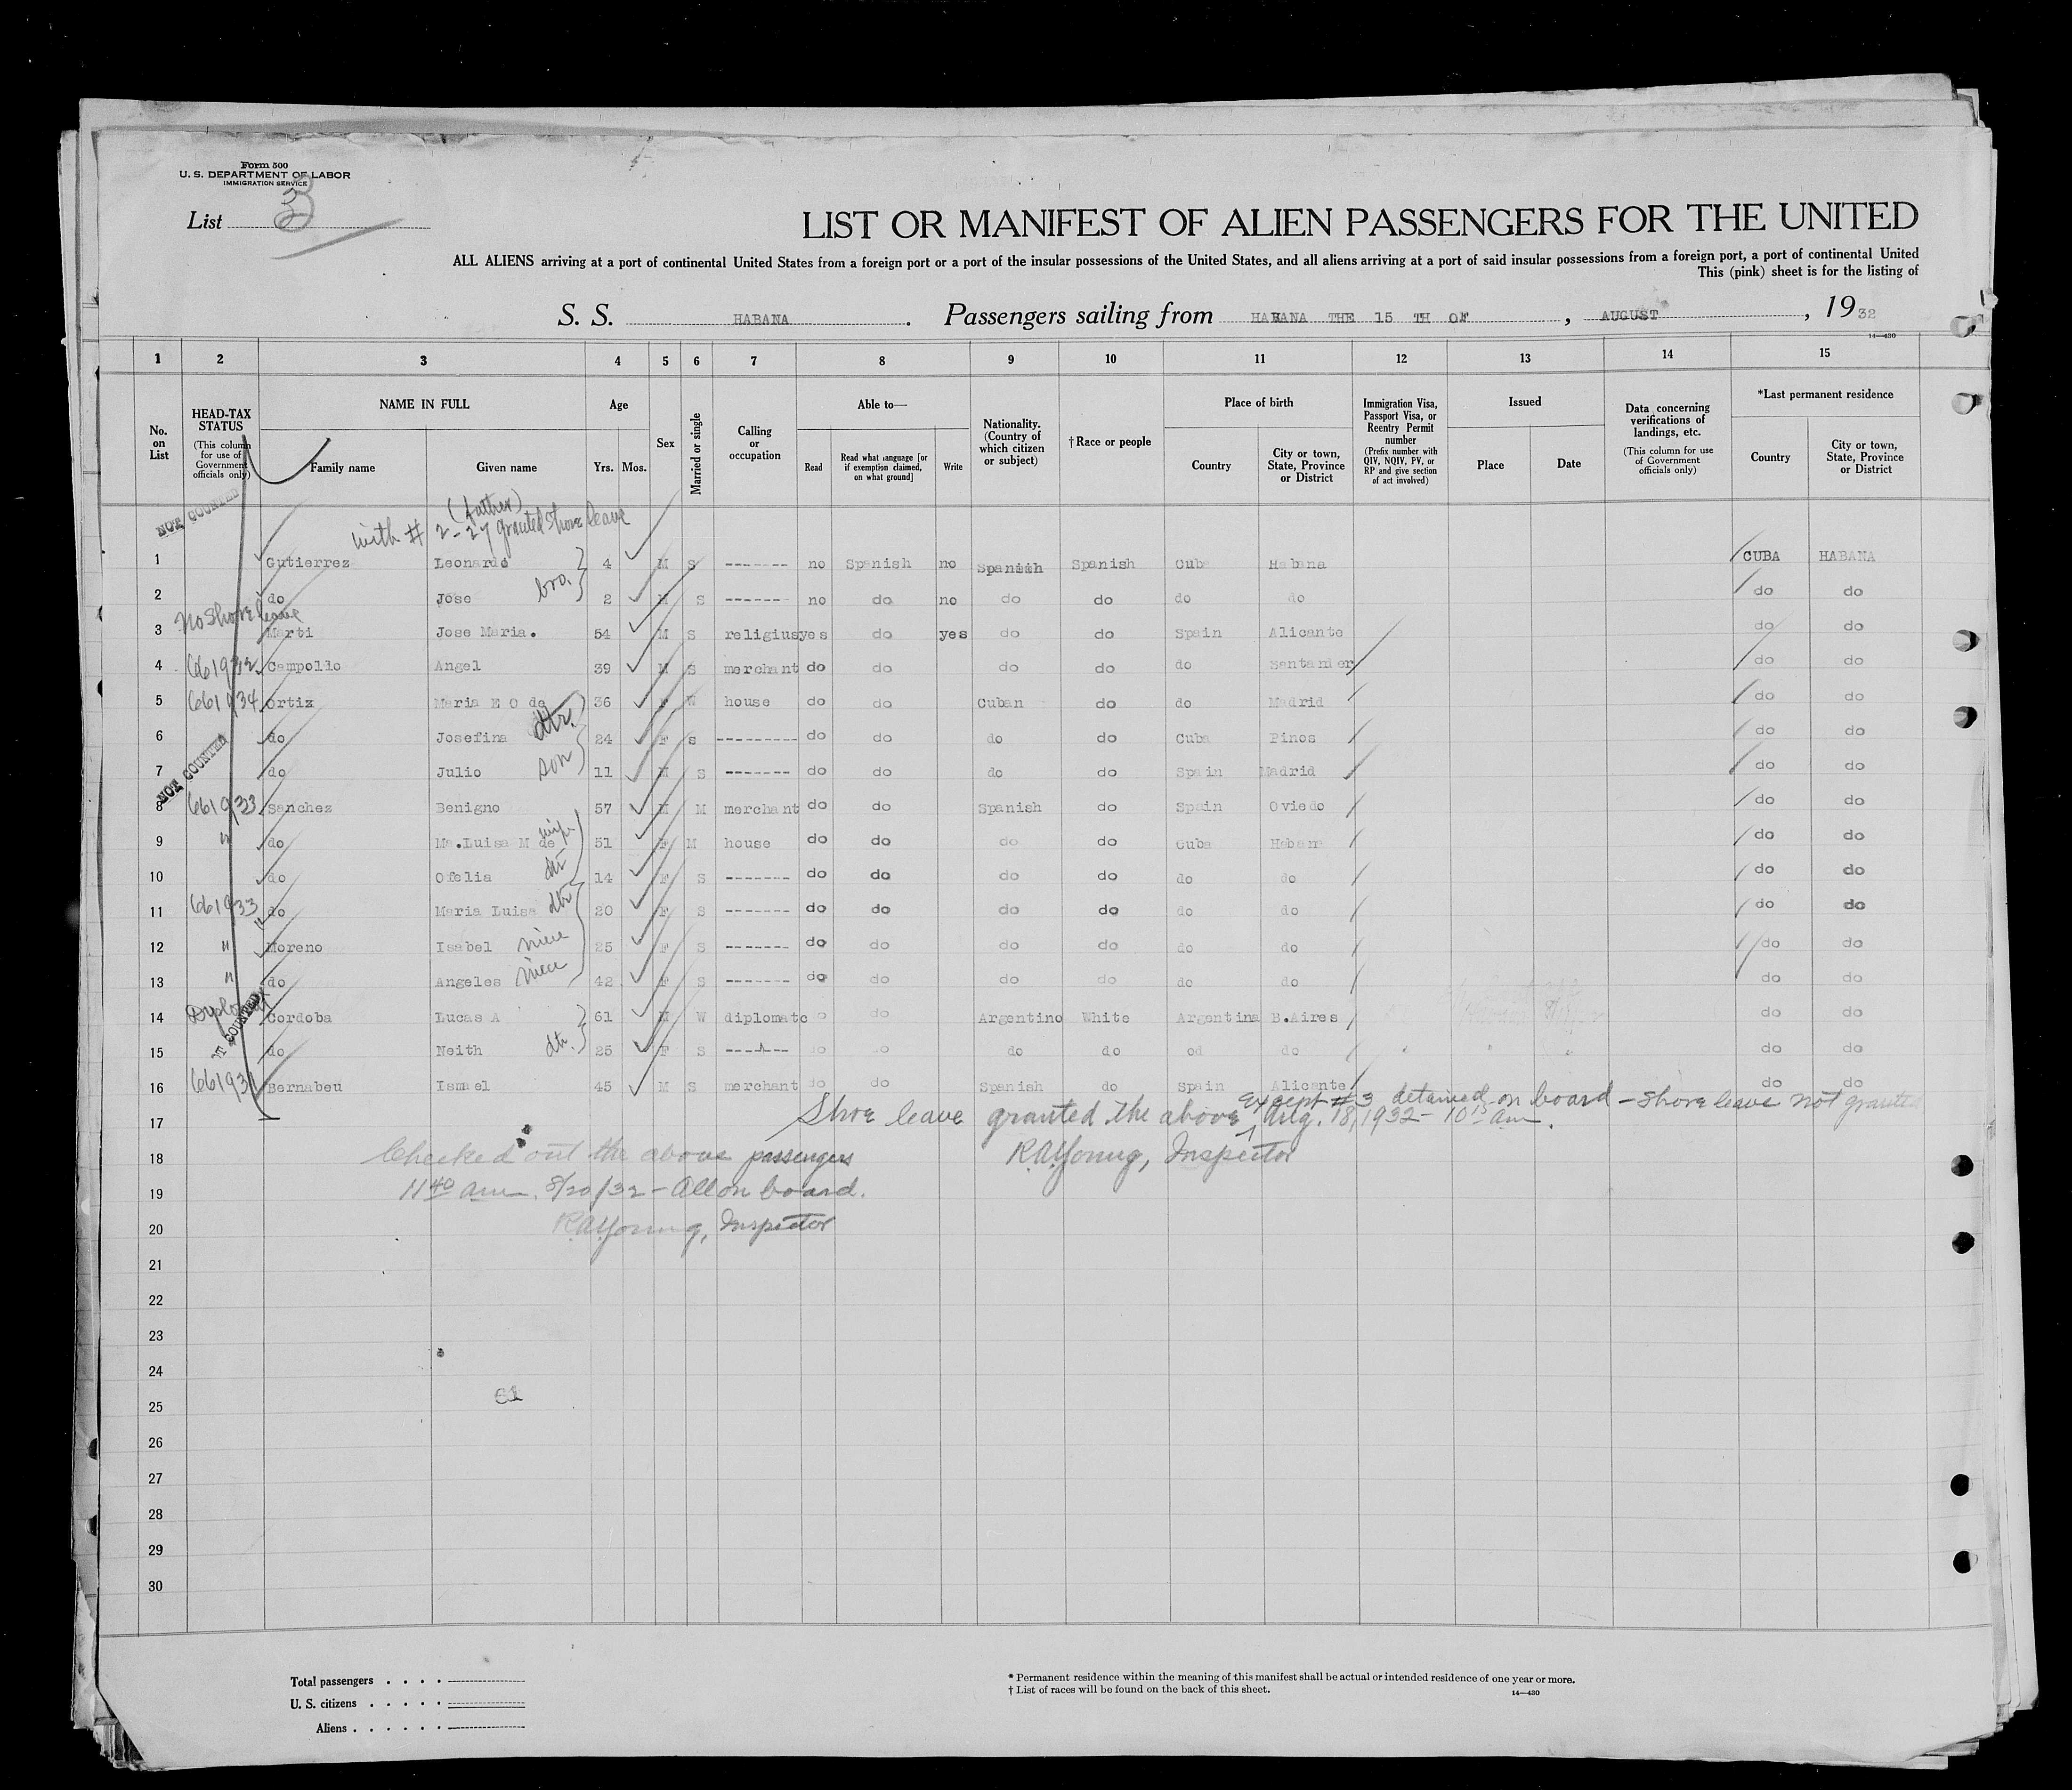 Form 500
U. S. DEPARTMENT OF LABOR
IMMIGRATION SERVICE
List 3
LIST OR MANIFEST OF ALIEN PASSENGERS FOR THE UNITED
ALL ALIENS arriving at a port of continental United States from a foreign port or a port of the insular possessions of the United States, and all aliens arriving at a port of said insular possessions from a foreign port, a port of continental United
This (pink) sheet is for the listing of
S. S. HABANA. Passengers sailing from HABANA THE 15 TH OF, AUGUST, 1932
14—430
1 2 3 4 5 6 7 8 9 10 11 12 13 14 15
No. on List
HEAD-TAX STATUS
(This column for use of Government officials only)
NAME IN FULL
Family name
Given name
Age
Yrs. Mos.
Sex
Married or single
Calling or occupation
Able to—
Read
Read what language [or if exemption claimed, on what ground]
Write
Nationality. (Country of which citizen or subject)
†Race or people
Place of birth
Country
City or town, State, Province or District
Immigration Visa, Passport Visa, or Reentry Permit number
(Prefix number with QIV, NQIV, PV, or RP and give section of act involved)
Issued
Place
Date
Data concerning verifications of landings, etc.
(This column for use of Government officials only)
*Last permanent residence
Country
City or town, State, Province or District
NOT COUNTED
(father)
with # 2-27 granted shore leave
1 Gutierrez Leonardo 4 M S ------- no Spanish no Spanish Spanish Cuba Habana CUBA HABANA
2 do Jose bro. 2 M S ------ no do no do do do do do do
No shore leave
3 Marti Jose Maria. 54 M S religius yes do yes do do Spain Alicante do do
4 661932 Campollo Angel 39 M S merchant do do do do do Santander do do
5 661934 Ortiz Maria E O de 36 F W house do do Cuban do do Madrid do do
6 do Josefina dtr. 24 F S --------- do do do do Cuba Pinos do do
7 do Julio son 11 M S ------- do do do do Spain Madrid do do
NOT COUNTED
8 661933 Sanchez Benigno 57 M M merchant do do Spanish do Spain Oviedo do do
9 " do Ma.Luisa M de wife 51 F M house do do do do Cuba Habana do do
10 do Ofelia dtr 14 F S ------- do do do do do do do do
11 661933 do Maria Luisa dtr 20 F S ------- do do do do do do do do
12 " Moreno Isabel niece 25 F S ------- do do do do do do do do
13 " do Angeles niece 42 F S ------- do do do do do do do do
14 Diplomat Cordoba Lucas A 61 M W diplomatc o do Argentino White Argentina B.Aires do do
15 do Neith dtr. 25 F S ------- do do do do od do do do
16 661931 Bernabeu Ismael 45 M S merchant do do Spanish do Spain Alicante do do
except #3 detained on board - shore leave not granted
17 Shore leave granted the above Aug. 18, 1932 - 10 15 am.
18 Checked out the above passengers R.A.Young, Inspector
19 11 40 am. 8/20/32 - All on board.
20 R.A.Young, Inspector
21
22
23
24
25
26
27
28
29
30
Total passengers . . . .
U. S. citizens . . . . .
Aliens . . . . . .
* Permanent residence within the meaning of this manifest shall be actual or intended residence of one year or more.
† List of races will be found on the back of this sheet.
14—430